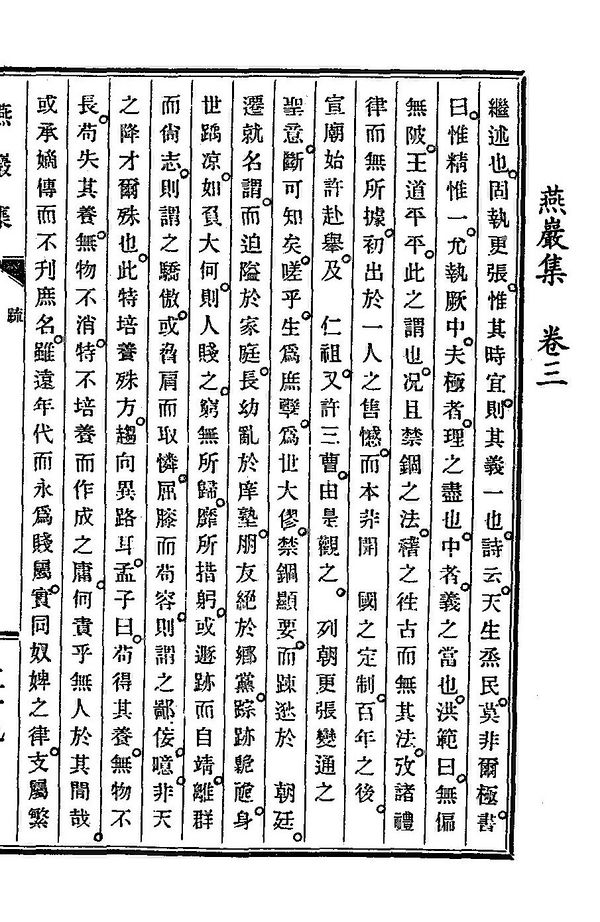 燕巖集 卷三
繼述也。固執更張。惟其時宜。則其義一也。詩云。天生烝民。莫非爾極。書
曰。惟精惟一。允執厥中。夫極者。理之盡也。中者。義之當也。洪範曰。無偏
無陂。王道平平。此之謂也。况且禁錮之法。稽之徃古而無其法。攷諸禮
律而無所據。初出於一人之售憾。而本非開 國之定制。百年之後。
宣廟始許赴擧。及 仁祖。又許三曹。由是觀之。 列朝更張變通之
聖意。斷可知矣。嗟乎。生爲庶孼。爲世大僇。禁錮顯要。而踈逖於 朝廷。
遷就名謂。而迫隘於家庭。長幼亂於庠塾。朋友絕於鄉黨。踪跡臲卼。身
世踽凉。如負大何。則人賤之。窮無所歸。靡所措躬。或遯跡而自靖。離群
而尙志。則謂之驕傲。或脅肩而取憐。屈膝而苟容。則謂之鄙佞。噫。非天
之降才爾殊也。此特培養殊方。趨向異路耳。孟子曰。苟得其養。無物不
長。苟失其養。無物不消。特不培養而作成之庸。何責乎無人於其間哉。
或承嫡傳而不刋庶名。雖遠年代而永爲賤屬。實同奴婢之律。支屬繁
燕巖集
疏